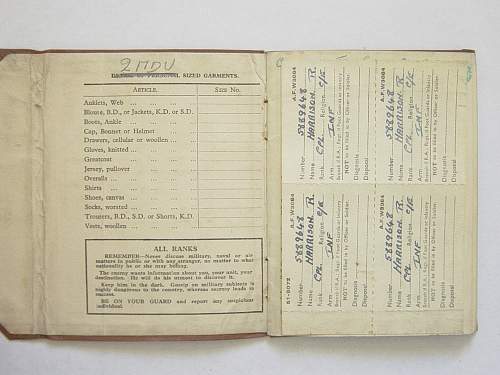 2 ITDU
SIZED GARMENTS.
ARTICLE. SIZE NO.
Anklets, Web ... ... ...
Blouse, B.D., or Jackets, K.D. or S.D.
Boots, Ankle ... ... ...
Cap, Bonnet or Helmet ...
Drawers, cellular or woollen ...
Gloves, knitted ... ... ...
Greatcoat ... ... ...
Jersey, pullover ... ...
Overalls ... ... ...
Shirts ... ... ...
Shoes, canvas ... ...
Socks, worsted ... ...
Trousers, B.D., S.D. or Shorts, K.D.
Vests, woollen ... ...
ALL RANKS
REMEMBER—Never discuss military, naval or air
matters in public or with any stranger, no matter to what
nationality he or she may belong.
The enemy wants information about you, your unit, your
destination. He will do his utmost to discover it.
Keep him in the dark. Gossip on military subjects is
highly dangerous to the country, whereas secrecy leads to
success.
BE ON YOUR GUARD and report any suspicious
individual.
A.F. W3064
Number 5889648
Name HARRISON R.
Rank CPL Relign. C/E
Arm INF
NOT to be filled in by Officer or Soldier.
Diagnosis
Disposal
A.F. W3064
Number 5889648
Name HARRISON R.
Rank CPL Relign. C/E
Arm INF
NOT to be filled in by Officer or Soldier.
Diagnosis
Disposal
51-8072
A.F. W3064
Number 5889648
Name HARRISON R.
Rank CPL Relign. C/E
Arm INF
NOT to be filled in by Officer or Soldier.
Diagnosis
Disposal
A.F. W3064
Number 5889648
Name HARRISON R.
Rank CPL Relign. C/E
Arm INF
NOT to be filled in by Officer or Soldier.
Diagnosis
Disposal